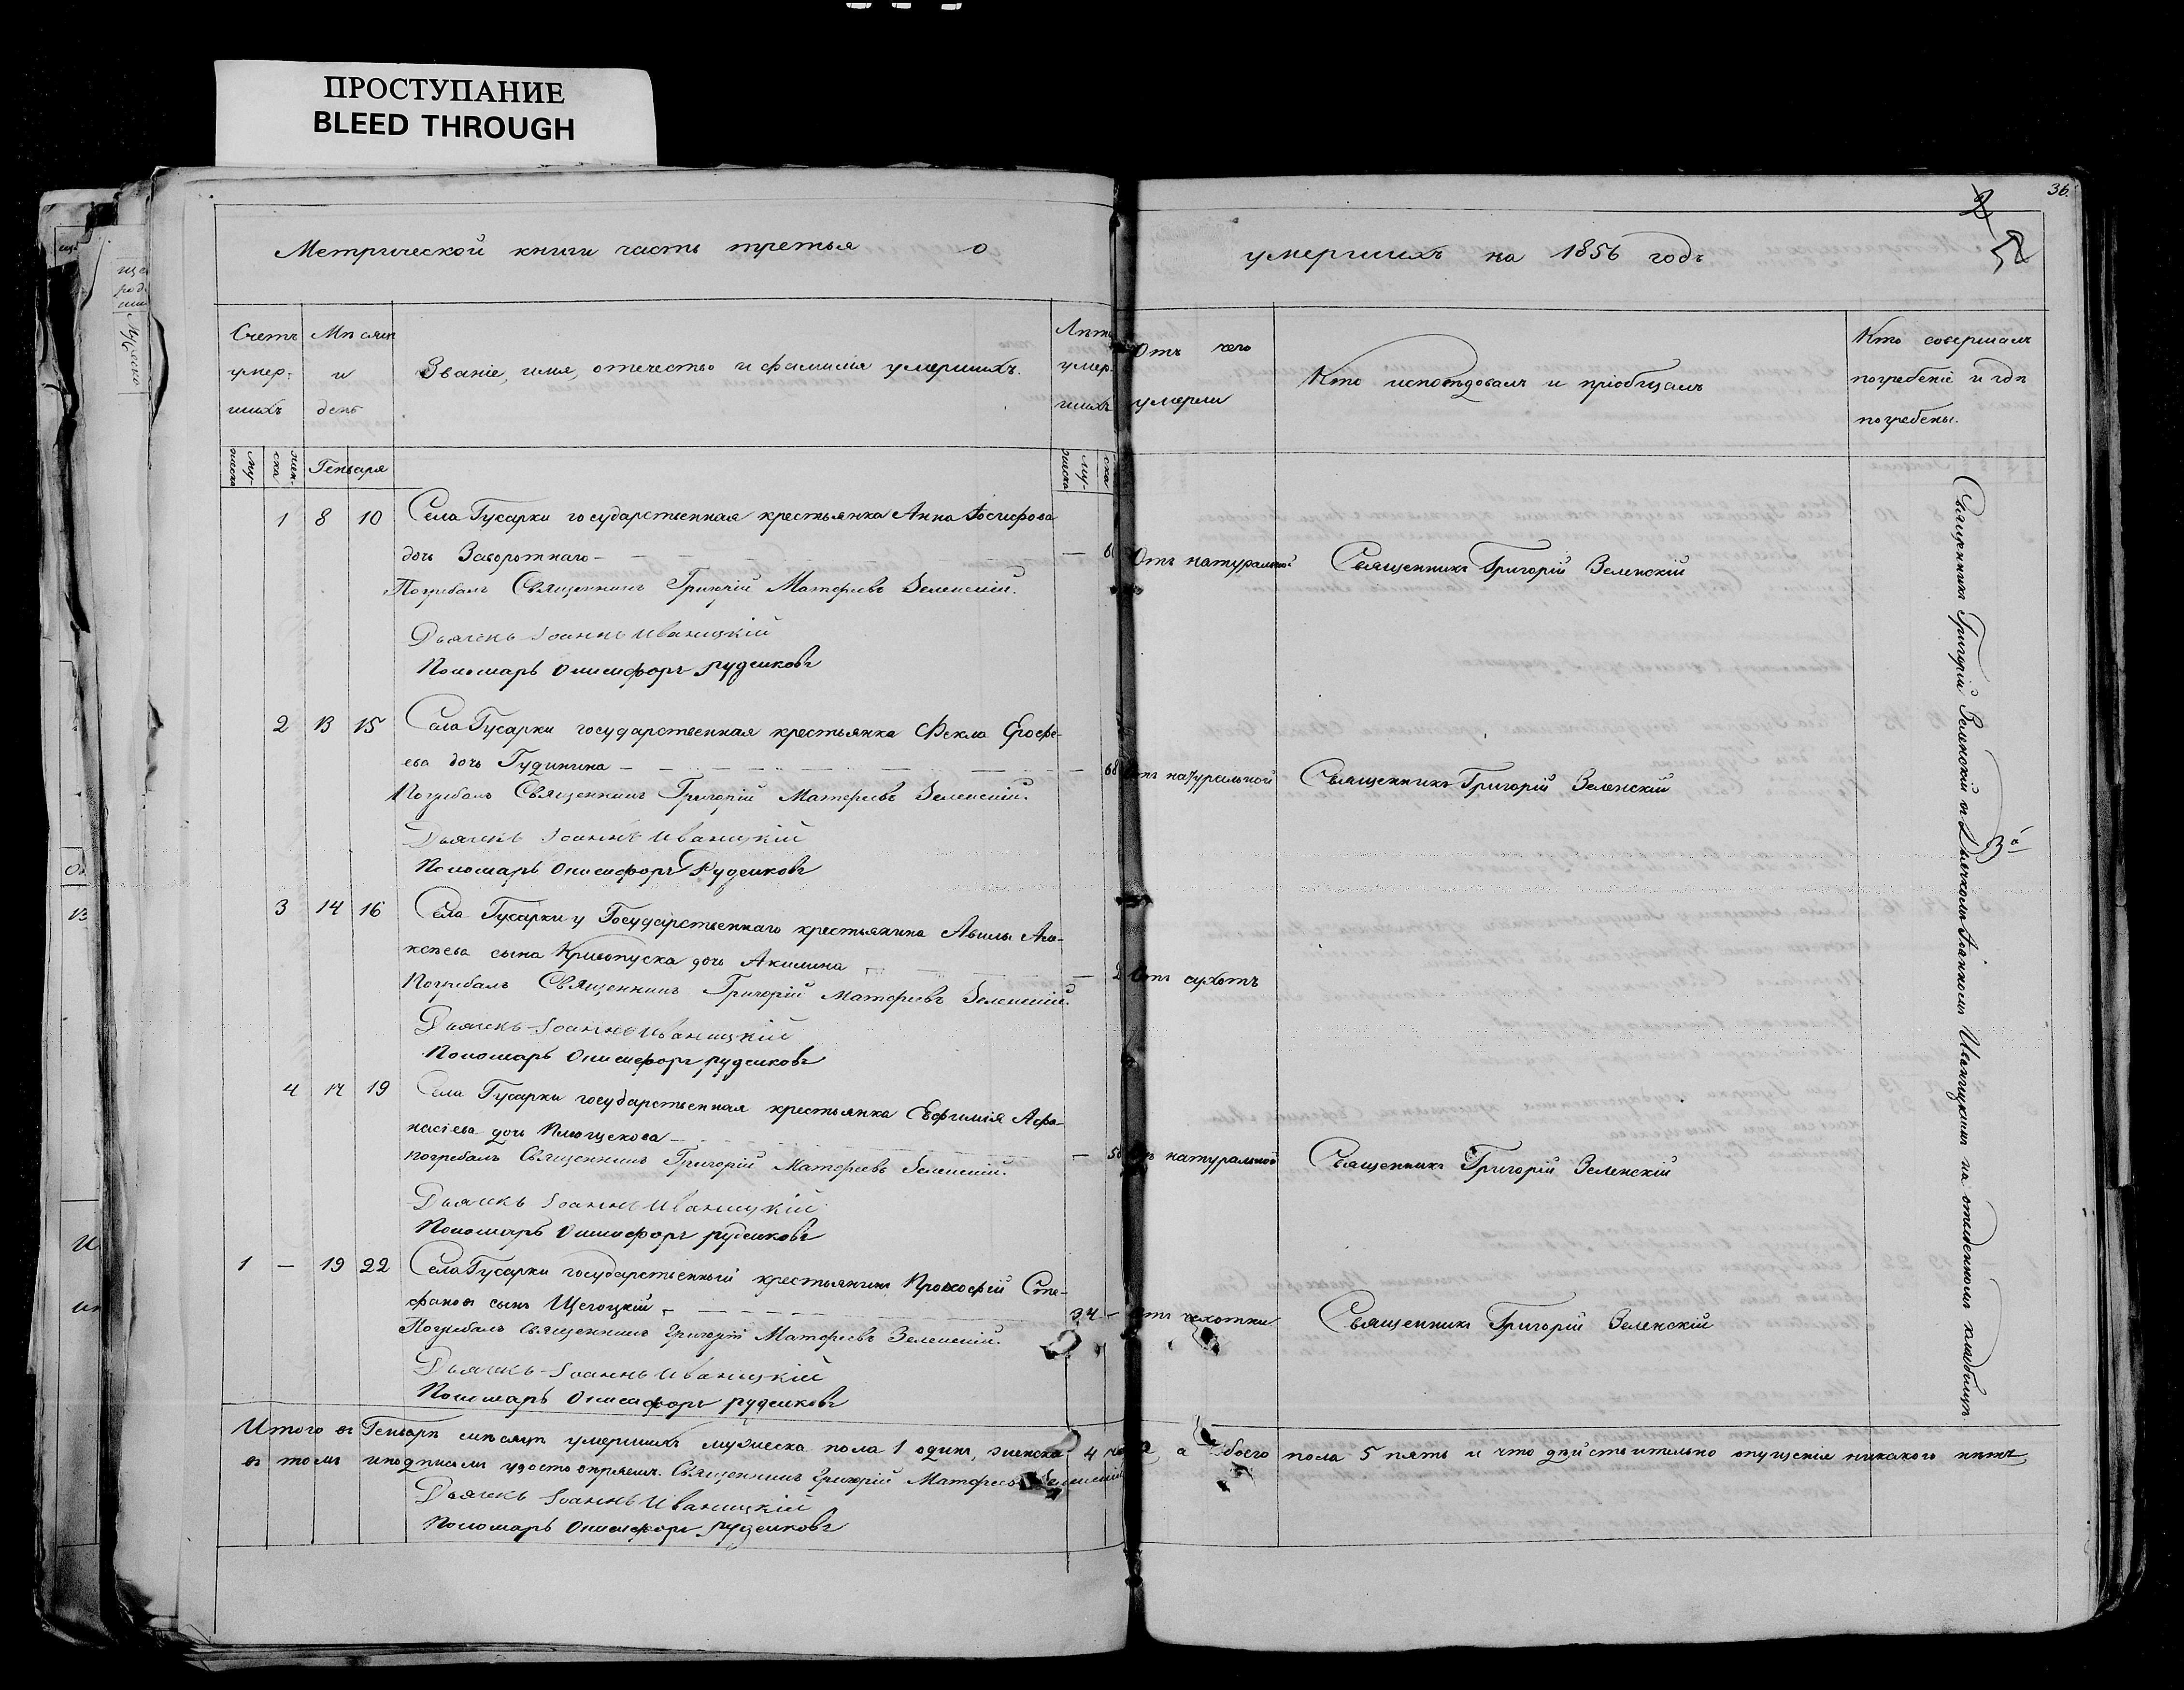 ПРОСТУПАНИЕ
BLEED THROUGH
36.
Метрической книги часть третья о умершихъ на 1856 годъ
Счетъ умер-шихъ
Мѣсяцъ и день
Званіе, имя, отечество и фамилія умершихъ.
Лѣта умер-шихъ
Отъ чего умерли
Кто исповѣдовалъ и пріобщалъ
Кто совершалъ погребеніе и гдѣ погребены.
му-жеска
жен-ска
Генваря
му-жеска
ска
1 8 10 Села Гусарки государственная крестьянка Анна Іосифова
дочь Заворотнаго — Отъ натуральной Священникъ Григорій Зеленскій
Погребалъ Священникъ Григорій Матфеевъ Зеленскій.
Дьячекъ Іоаннъ Иваницкій
Пономарь Онисифоръ Рудемковъ
2 13 15 Села Гусарки государственная крестьянка Фекла Ерофе-
ева дочь Гудинина — 68 Отъ натуральной Священникъ Григорій Зеленскій
Погребалъ Священникъ Григорій Матфеевъ Зеленскій.
Дьячекъ Іоаннъ Иваницкій
Пономарь Онисифоръ Рудемковъ
3 14 16 Села Гусарки у Государственнаго крестьянина Авилы Але-
ксѣева сына Кривопуска дочь Акилина — 2 Отъ сухотъ
Погребалъ Священникъ Григорій Матфеевъ Зеленскій.
Дьячекъ Іоаннъ Иваницкій
Пономарь Онисифоръ Рудемковъ
4 17 19 Села Гусарки государственная крестьянка Евфимія Афа-
насіева дочь Плющекова — Отъ натуральной Священникъ Григорій Зеленскій
погребалъ Священникъ Григорій Матфеевъ Зеленскій.
Дьячекъ Іоаннъ Иваницкій
Пономарь Онисифоръ рудемковъ
1 — 19 22 Села Гусарки государственный крестьянинъ Прокофій Сте-
фановъ сынъ Щегоцкій — 34 — Отъ чахотки Священникъ Григорій Зеленскій
Погребалъ Священникъ Григорій Матфеевъ Зеленскій.
Дьячекъ Іоаннъ Иваницкій
Пономарь Онисифоръ рудемковъ
Священникъ Григорій Зеленскій съ Дьячкомъ Іоанномъ Иваницкимъ на отведенномъ кладбищѣ
Итого въ Генварѣ мѣсяцѣ умершихъ мужеска пола 1 одинъ, женска 4 а обоего пола 5 пять и что дѣйствительно опущенія никакого нѣтъ
въ томъ и подписомъ удостовѣряемъ. Священникъ Григорій Матфеевъ Зеленскій
Дьячекъ Іоаннъ Иваницкій
Пономарь Онисифоръ рудемковъ